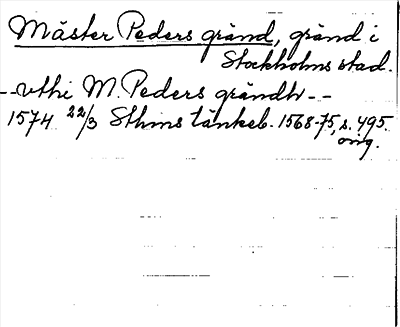 Mäster Peders gränd, gränd i
Stockholms stad.
--vthi M. Peders grändh--
1574 22/3 Sthms tänkeb. 1568-75, s. 495.
orig.